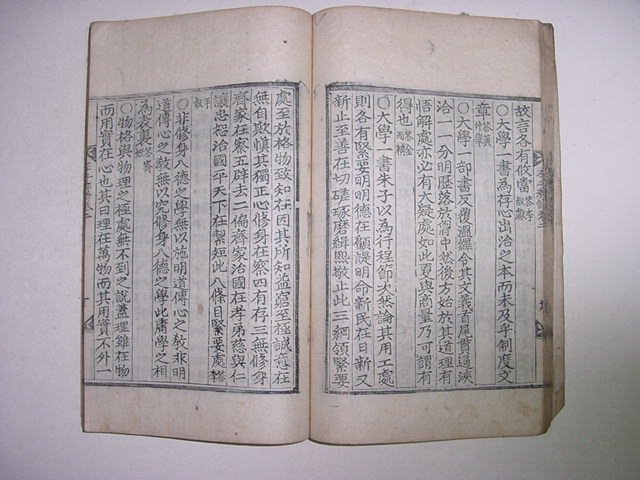 故言各有攸當 答李叔獻
○大學一書為存心出治之本而未及乎制度文
章 答黃仲擧
○大學一部書反覆溫繹令其文義首尾貫通浹
洽一一分明歷落於胷中然後方始於其道理有
悟解處亦必有大疑處如此更與商量乃可謂有
得也 答金而精
○大學一書朱子以為行程節次然論其用工處
則各有緊要明明德在顧諟明命新民在日新又
新止至善在切磋琢磨緝熙敬止此三綱領緊要
處至於格物致知在因其所知益窮至極誠意在
無自欺愼其獨正心修身在察四有存三無修身
齊家在察五辟去二偏齊家治國在孝弟慈與仁
讓忠恕治國平天下在絜矩此八條目緊要處 答李
平叔
○非修身八德之學無以施明道傳心之敎非明
道傳心之敎無以究修身八德之學此庸學之相
為表裏 答
○物格與物理之極處無不到之說蓋理雖在物
而用實在心也其曰理在萬物而其用實不外一